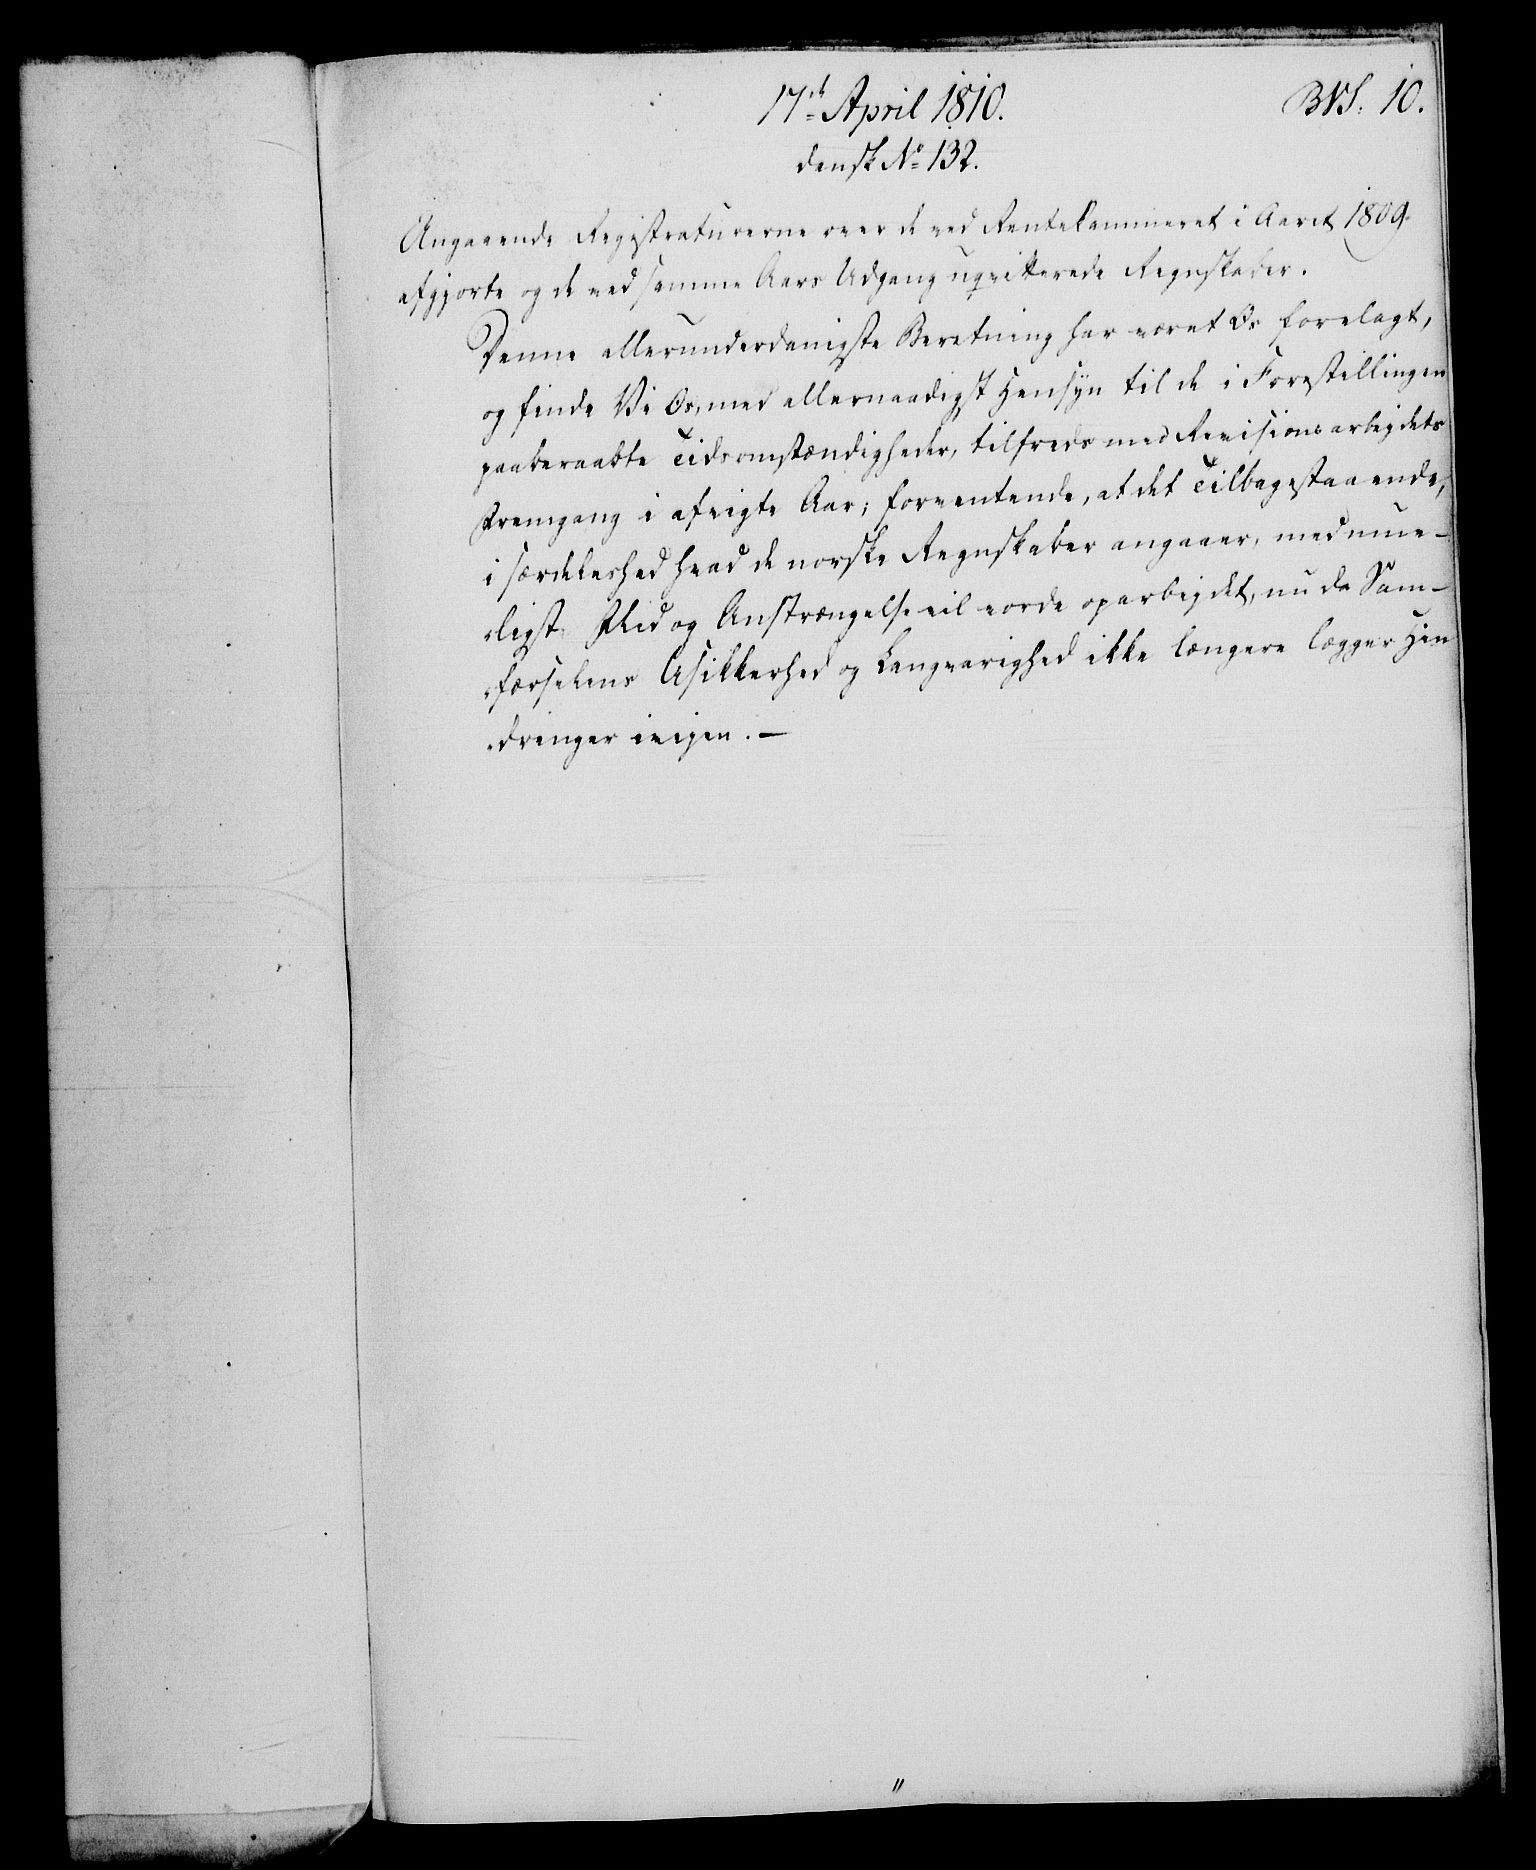 17de April 1810.
10.
dansk No 132.
Angaaende Registraturerne over de ved Rentekammeret i Aaret 1809
afgjorte og de ved samme Aars Udgang uqvitterede Regnskaber.
Denne allerunderdanigste Beretning har været Os forelagt,
og finde Vi Os, med allernaadigst Hensyn til de i Forestillingen
paaberaabte Tidsomstændigheder, tilfreds med Revisionsarbejdets
Fremgang i afvigte Aar; forventende, at det Tilbagestaaende,
i særdeleshed hvad de norske Regnskaber angaaer, med mue-
ligst Flid og Anstrængelse vil vorde oparbejdet, nu da Sam-
færselens Usikkerhed og Langvarighed ikke længere lægger Hin
dringer iveien. —